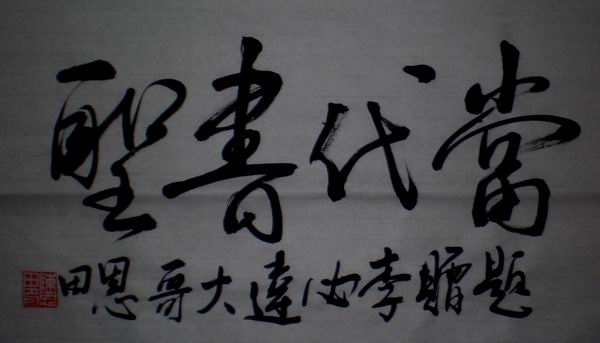 當代書聖
題贈李必達大哥恩田